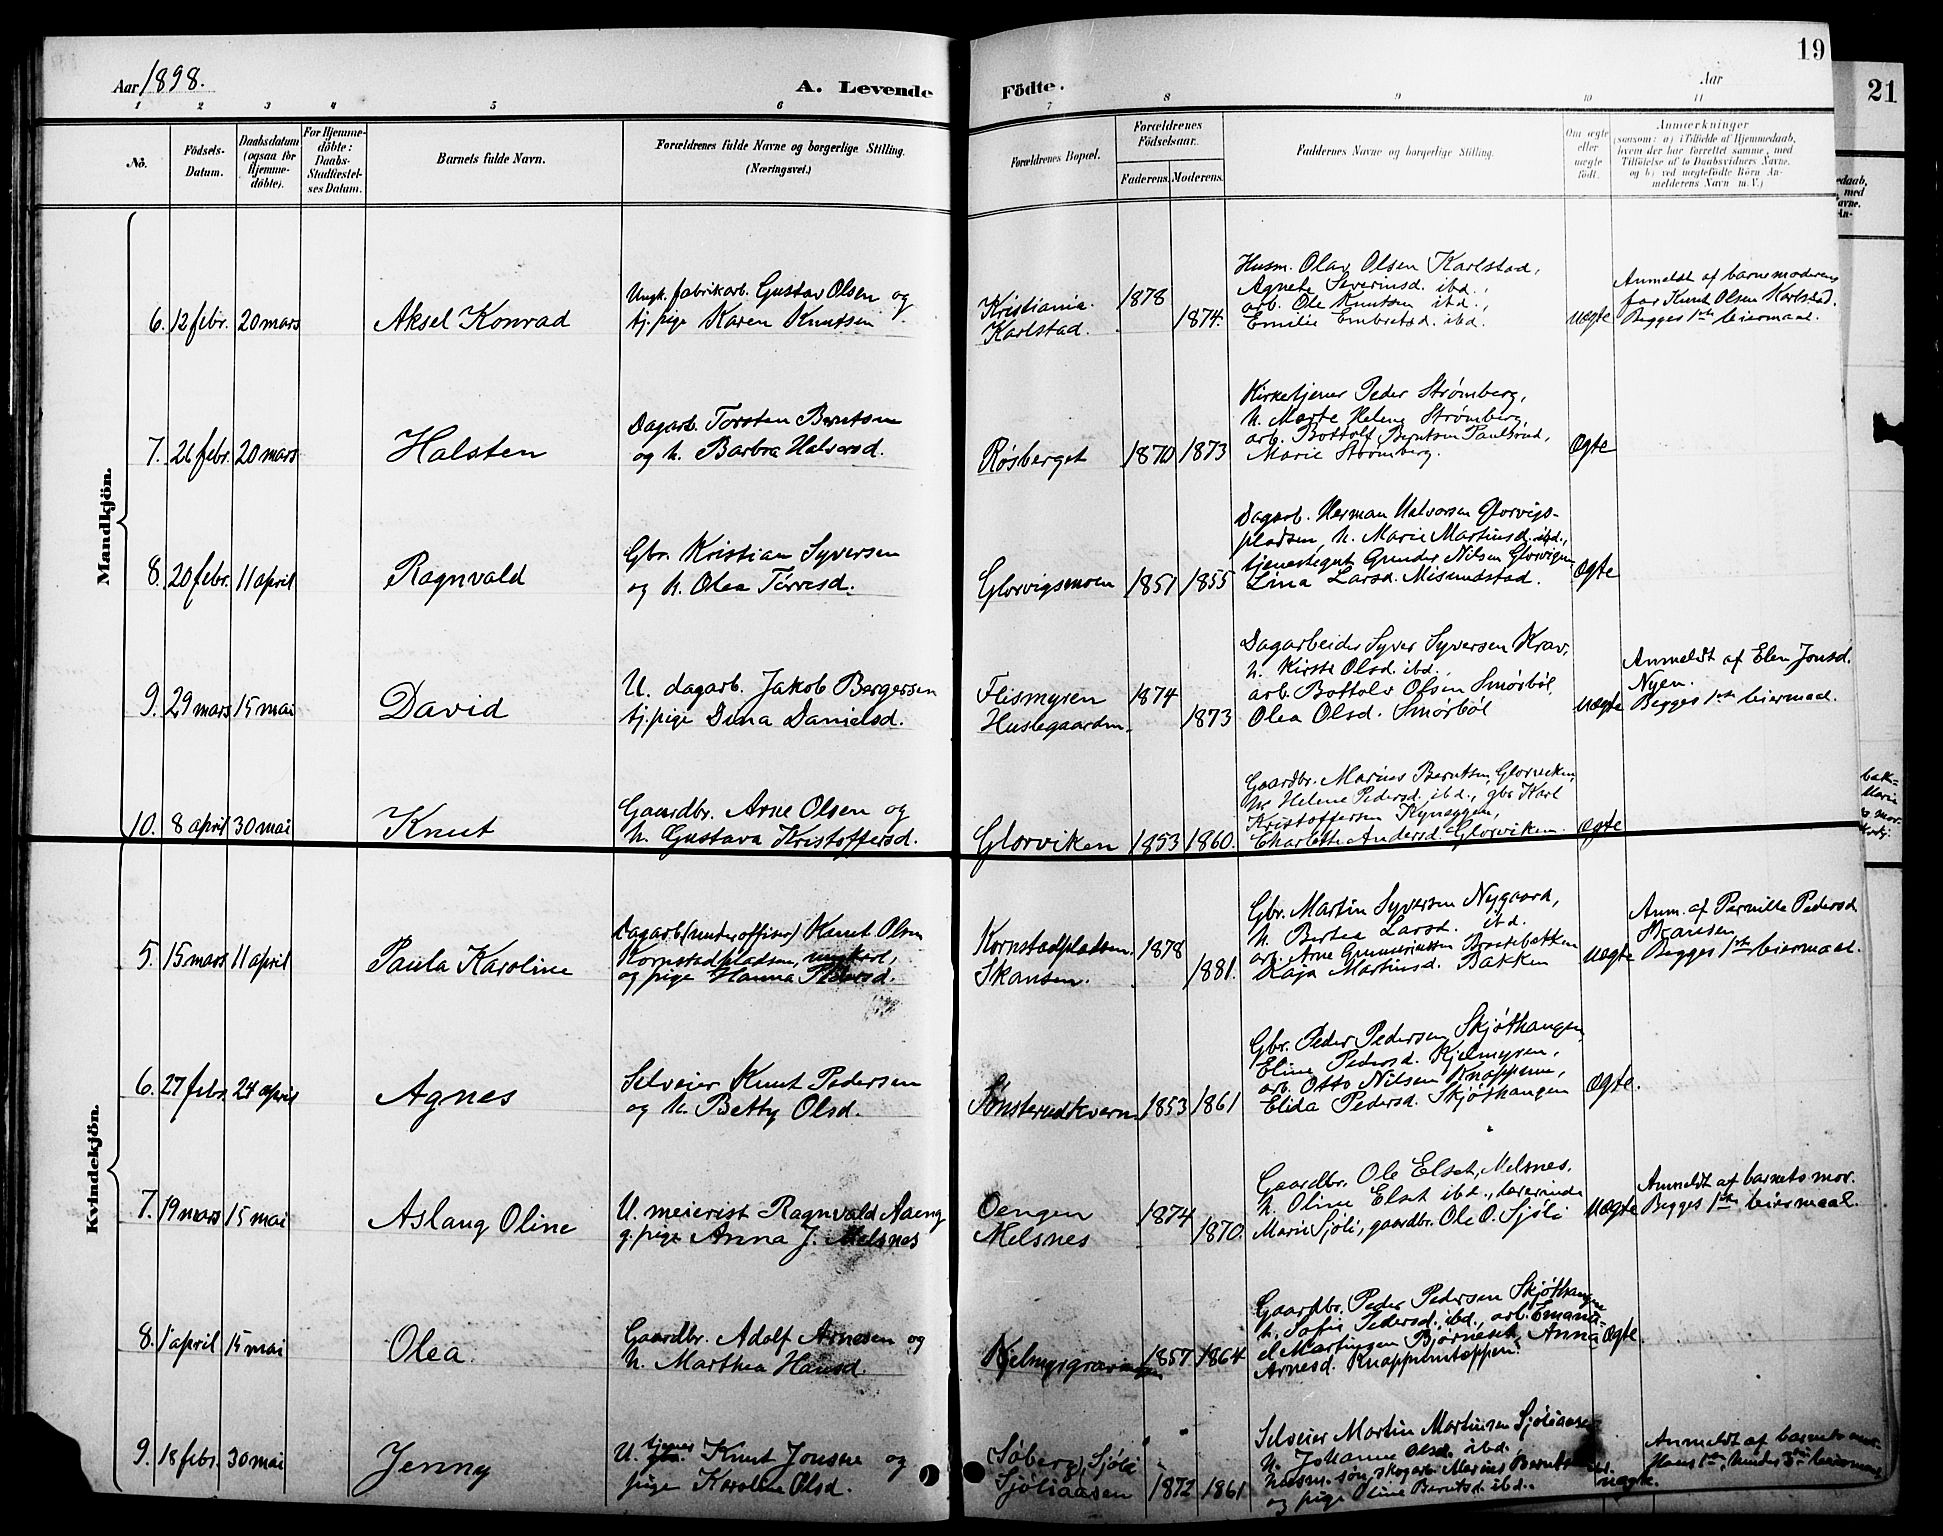 Aar 1898.
A. Levende Födte.
Aar
19
21
1 2 3 4 5 6 7 8 9 10 11
Nō.
Födsels-Datum.
Daabsdatum (ogsaa for Hjemmedöbte).
For Hjemmedöbte: Daabs-Stadfæstelses Datum.
Barnets fulde Navn.
Forældrenes fulde Navne og borgerlige Stilling. (Næringsvei.)
Forældrenes Bopæl.
Forældrenes Födselsaar.
Faderens. Moderens.
Faddernes Navne og borgerlige Stilling.
Om ægte eller uægte födt.
Anmærkninger
(saasom: a) i Tilfælde af Hjemmedaab, hvem der har forrettet samme, med Tilföielse af to Daabsvidners Navne, og b) ved uegtefödte Börn Anmelderens Navn m. V.)
Mandkjön.
6. 12 febr. 20 mars Aksel Konrad
Ungk. fabrikarb. Gustav Olsen og
tj.pige Karen Knutsen
Kristiania. 1878
Karlstad. 1874.
Husm. Olav Olsen Karlstad,
Agnete Severinsd. ibd.,
arb. Ole Knutsen ibd.,
Emilie Embretsd. ibd.
uægte
Anmeldt af barnemoderens
far Knut Olsen Karlstad.
Begges 1ste leiermaal.
7. 26 febr. 20 mars Halsten
Dagarb. Torsten Berntsen
og h. Barbra Halvorsd.
Røsberget 1870 1873
Kirketjener Peder Strømberg,
h. Marte Helene Strømberg,
arb. Bottolf Berntsen Paulsrud,
Marie Strømberg.
Ægte
8. 20 febr. 11 april Ragnvald
Gbr. Kristian Syversen
og h. Olea Torresd.
Glorvigsmoen 1851 1855
Dagarb. Herman Halvorsen Glorvigs-
pladsen, h. Marie Martinsd. ibd.,
tjenestegut Gunder Nilsen Glorvigen
Lina Larsd. Misundstad.
Ægte
9. 29 mars 15 mai David
U. dagarb. Jakob Bergersen
tj.pige Dina Danielsd.
Flismyren 1874
Hustegaarden. 1873
Dagarbeider Syver Syversen Krav,
h. Kirsti Olsd. ibd.,
arb. Bottolv Olsen Smørbøl,
Olea Olsd. Smørbøl
uægte
Anmeldt af Elen Jonsd.
Nyen.
Begges 1ste leiermaal.
10. 8 april 30 mai Knut
Gaardbr. Arne Olsen og
h. Gustava Kristoffersd.
Glorviken 1853 1860.
Gaardbr. Marius Berntsen, Glorviken,
h. Helene Pedersd. ibd., gbr. Karl
Kristoffersen Kynæggen,
Charlotte Andersd. Glorviken.
Ægte
Kvindekjön.
5. 15 mars 11 april Paula Karoline
Dagarb. (underoffiser) Knut Olsen
Kornstadpladsen, ungkarl,
og pige Hanna Pedersd.
Kornstadpladsen. 1878
Skansen. 1881.
Gbr. Martin Syversen Nygaard,
h. Bertea Larsd. ibd.
arb. Arne Gunneriussen Braatebakken
Kaja Martinsd. Bakken
uægte
Anm. af Pernille Pedersd
Skansen
Begges 1ste leiermaal.
6. 27 febr. 24 april Agnes
Selveier Knut Pedersen
og h. Betty Olsd.
Sønsterudkvern 1853 1861
Gbr. Peder Pedersen Skjøthaugen,
Eline Pedersd. Kjelmyren,
arb. Otto Nilsen Knappene,
Elida Pedersd. Skjøthaugen
Ægte.
7. 19 mars 15 mai Aslaug Oline
U. meierist Ragnvald Aaeng
g.pige Anna J. Melsnes
Oengen 1874
Melsnes 1870.
Gaardbr. Ole Elset, Melsnes,
h. Oline Elset ibd., lærerinde
Marie Sjøli, gaardbr. Ole O. Sjøli
uægte
Anmeldt af barnets mor.
Begges 1ste leiermaal.
8. 1 april 15 mai Olea.
Gaardbr. Adolf Arnesen og
h. Marthea Hansd.
1857 1864
Gaardbr. Peder Pedersen Skjøthaugen
h. Sofie Pedersd. ibd., arb. Emanu-
el Martinsen Bjørneset, Anna
Arnesd.
Ægte
9. 18 febr. 30 mai Jenny
U. tjener Knut Jonsen og
pige Karoline Olsd.
Søberg, Sjøli
Sjøliaasen 1872 1861
Selveier Martin Martinsen Sjøliaasen
h. Johanne Olsd. ibd.,
husm. søn, skogarb. Marius Berntsen ibd.
og pige Oline Berntsd. ibd.
uægte.
Anmeldt af barnets mor.
Hans 1ste, hendes 3die leiermaal